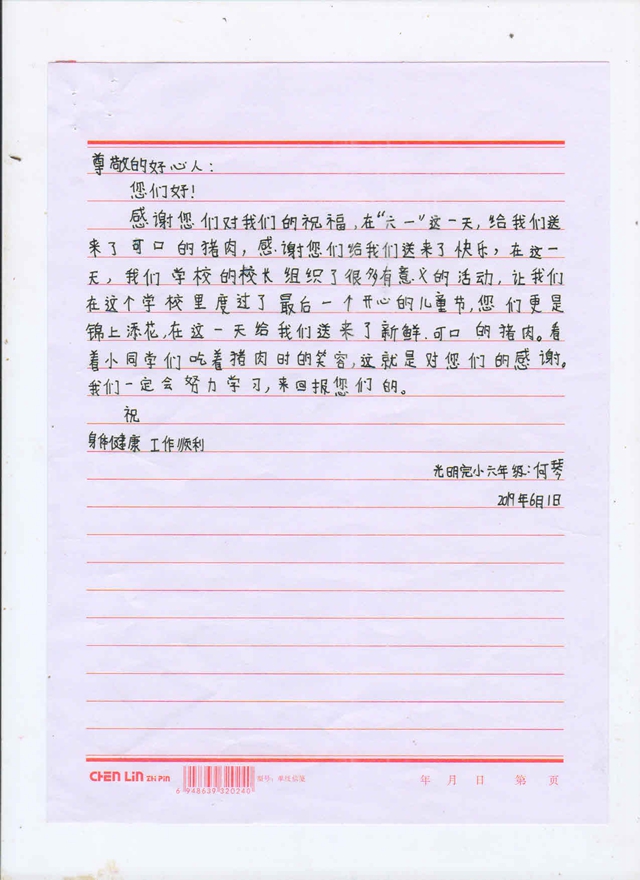 尊敬的好心人：
您们好！
感谢您们对我们的祝福，在“六一”这一天，给我们送
来了可口的猪肉，感谢您们给我们送来了快乐，在这一
天，我们学校的校长组织了很多有意义的活动，让我们
在这个学校里度过了最后一个开心的儿童节，您们更是
锦上添花，在这一天给我们送来了新鲜.可口的猪肉。看
着小同学们吃着猪肉时的笑容，这就是对您们的感谢。
我们一定会努力学习，来回报您们的。
祝
身体健康 工作顺利
光明完小六年级：何琴
2019年6月1日
CHEN LIN ZHi PiN
6 948639 320240
年 月 日 第 页